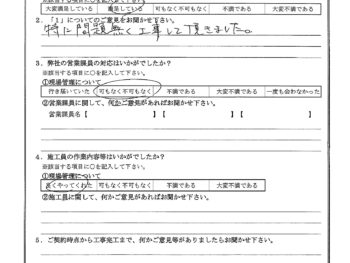 大変満足している 満足している 可もなく不可もなく 不満である 大変不満である
２．「１」についてのご意見をお聞かせ下さい。
特に問題無く工事して頂きました。
３．弊社の営業課員の対応はいかがでしたか？
※該当する項目に○を記入して下さい。
①現場管理について
行き届いていた 可もなく不可もなく 不満である 大変不満である 一度も会わなかった
②営業課員に関して、何かご意見があればお聞かせ下さい。
営業課員名【 】【 】【 】
４．施工員の作業内容等はいかがでしたか？
※該当する項目に○を記入して下さい。
①現場管理について
良くやってくれた 可もなく不可もなく 不満である 大変不満である
②施工員に関して、何かご意見があればお聞かせ下さい。
５．ご契約時点から工事完工まで、何かご意見等がありましたらお聞かせ下さい。